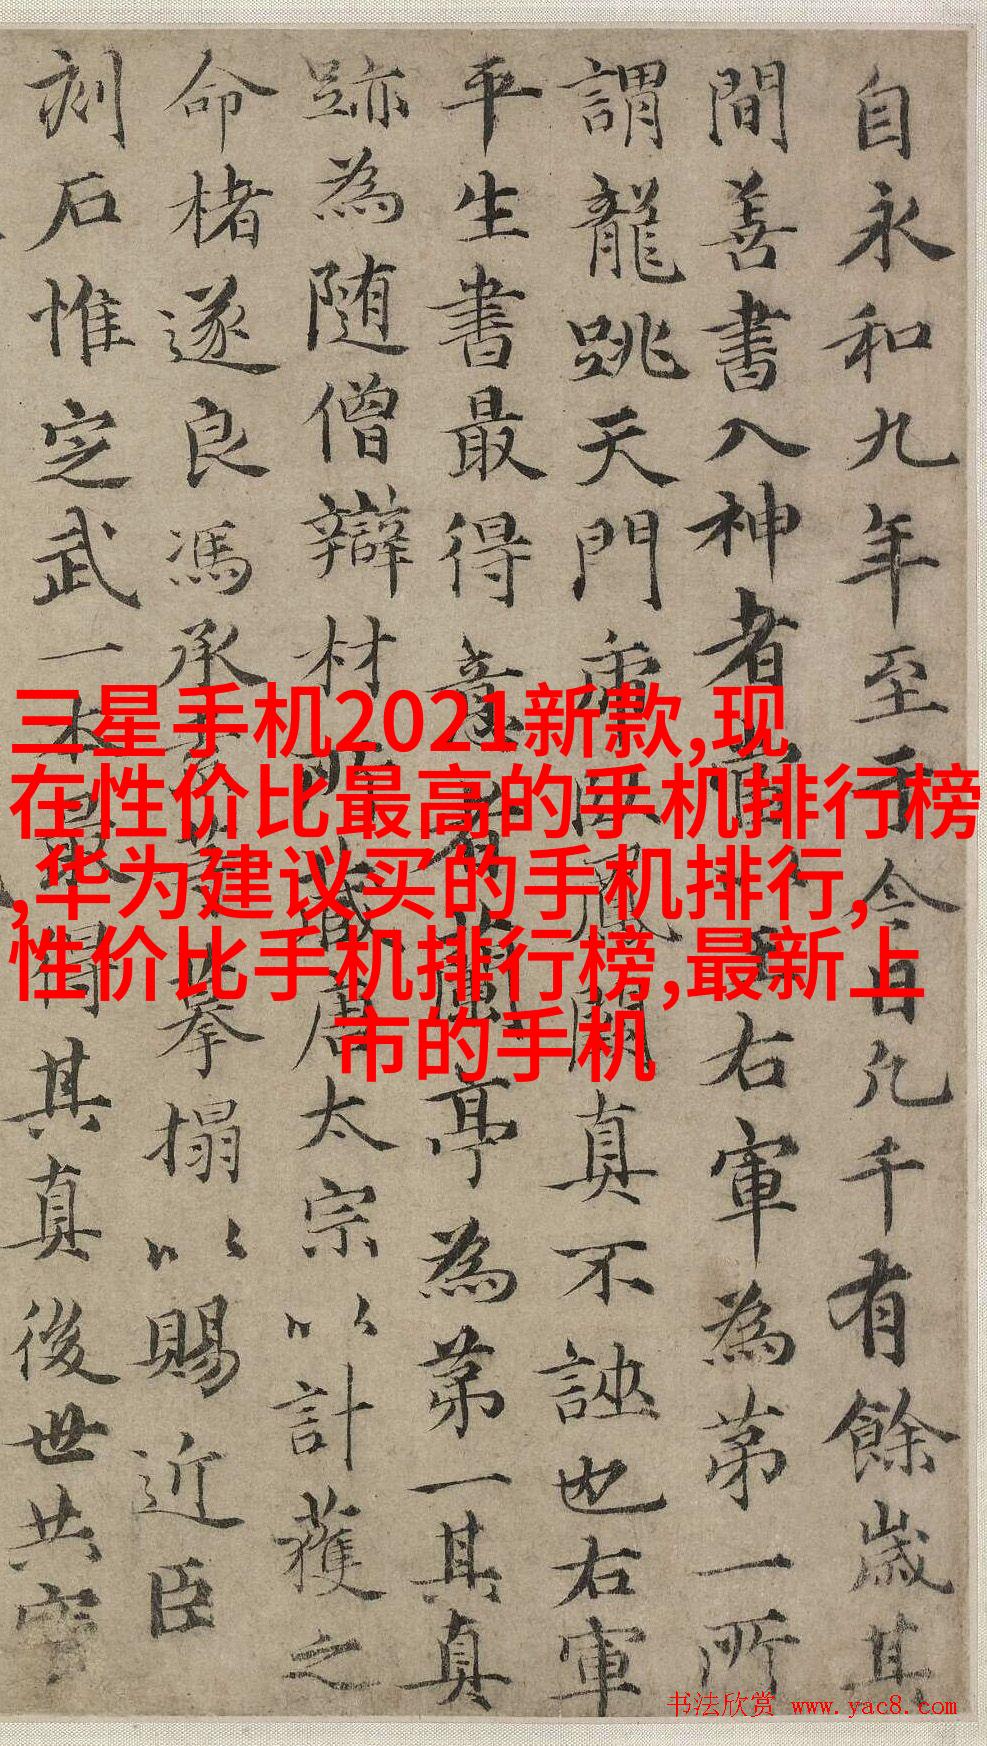 自永和九年至于今日凡千有餘歲其
間善書入神者右軍為第一所
謂龍跳天門虎臥鳳閣真不誣也右軍
平生書最得意者蘭亭為第一其真
跡為随僧辯材所藏唐太宗以計獲之
命楮遂良馮承素等摹搨以賜近臣
刻石惟定武一本最得其真後世共寶
三星手机2021新款,现
在性价比最高的手机排行榜
,华为建议买的手机排行,
性价比手机排行榜,最新上
市的手机
书法欣赏 www.yac8.com